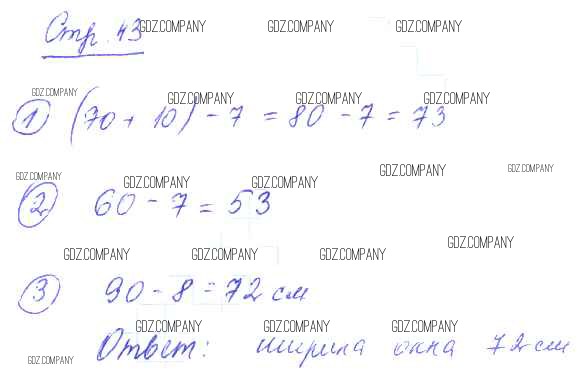 GDZ.COMPANY GDZ.COMPANY GDZ.COMPANY
Стр. 43
GDZ.COMPANY GDZ.COMPANY GDZ.COMPANY GDZ.COMPANY
1) (70 + 10) - 7 = 80 - 7 = 73
GDZ.COMPANY GDZ.COMPANY GDZ.COMPANY GDZ.COMPANY GDZ.COMPANY
2) 60 - 7 = 53
GDZ.COMPANY GDZ.COMPANY GDZ.COMPANY GDZ.COMPANY
3) 90 - 8 = 72 см
GDZ.COMPANY GDZ.COMPANY GDZ.COMPANY GDZ.COMPANY
Ответ: ширина окна 72 см